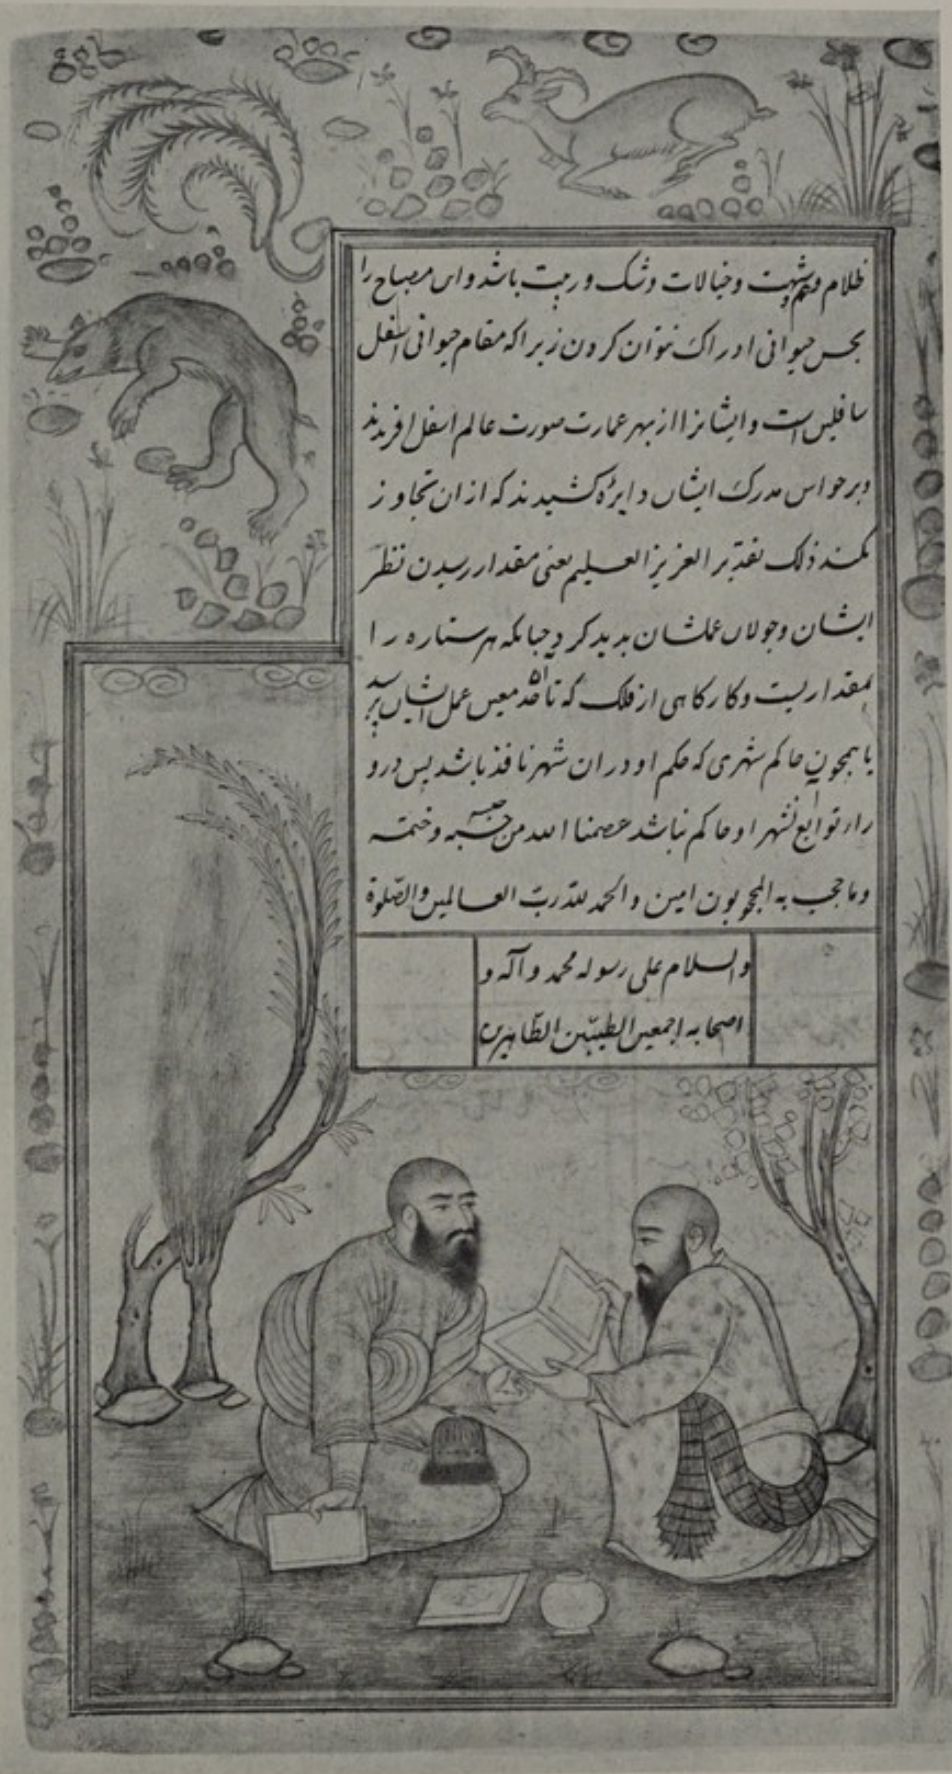 ظلام وهم و شبهت و خیالات و شک و ریبت باشد و این مصباح را
بحس حیوانی ادراک نتوان کردن زیرا که مقام حیوانی اسفل
سافلین است و ایشانرا از بهر عمارت صورت عالم اسفل افریدند
و بر حواس مدرک ایشان دایرهٔ کشیدند که از ان تجاوز
نکنند ذلک تقدیر العزیز العلیم یعنی مقدار رسیدن نظر
ایشان و جولان عملشان پدید کرد چنانکه هر ستاره را
مقداریست و کارکاهی از فلک که تا ان حد معین عمل ایشان برسد
یا همچون حاکم شهری که حکم او در ان شهر نافذ باشد پس در و
راء توابع ان شهر او حاکم نباشد عصمنا الله من حبسه و ختمه
و ما حجب به المحجوبون امین و الحمد لله رب العالمین و الصّلوة
و السلام علی رسوله محمد و آله و
اصحابه اجمعین الطیبّین الطّاهرین